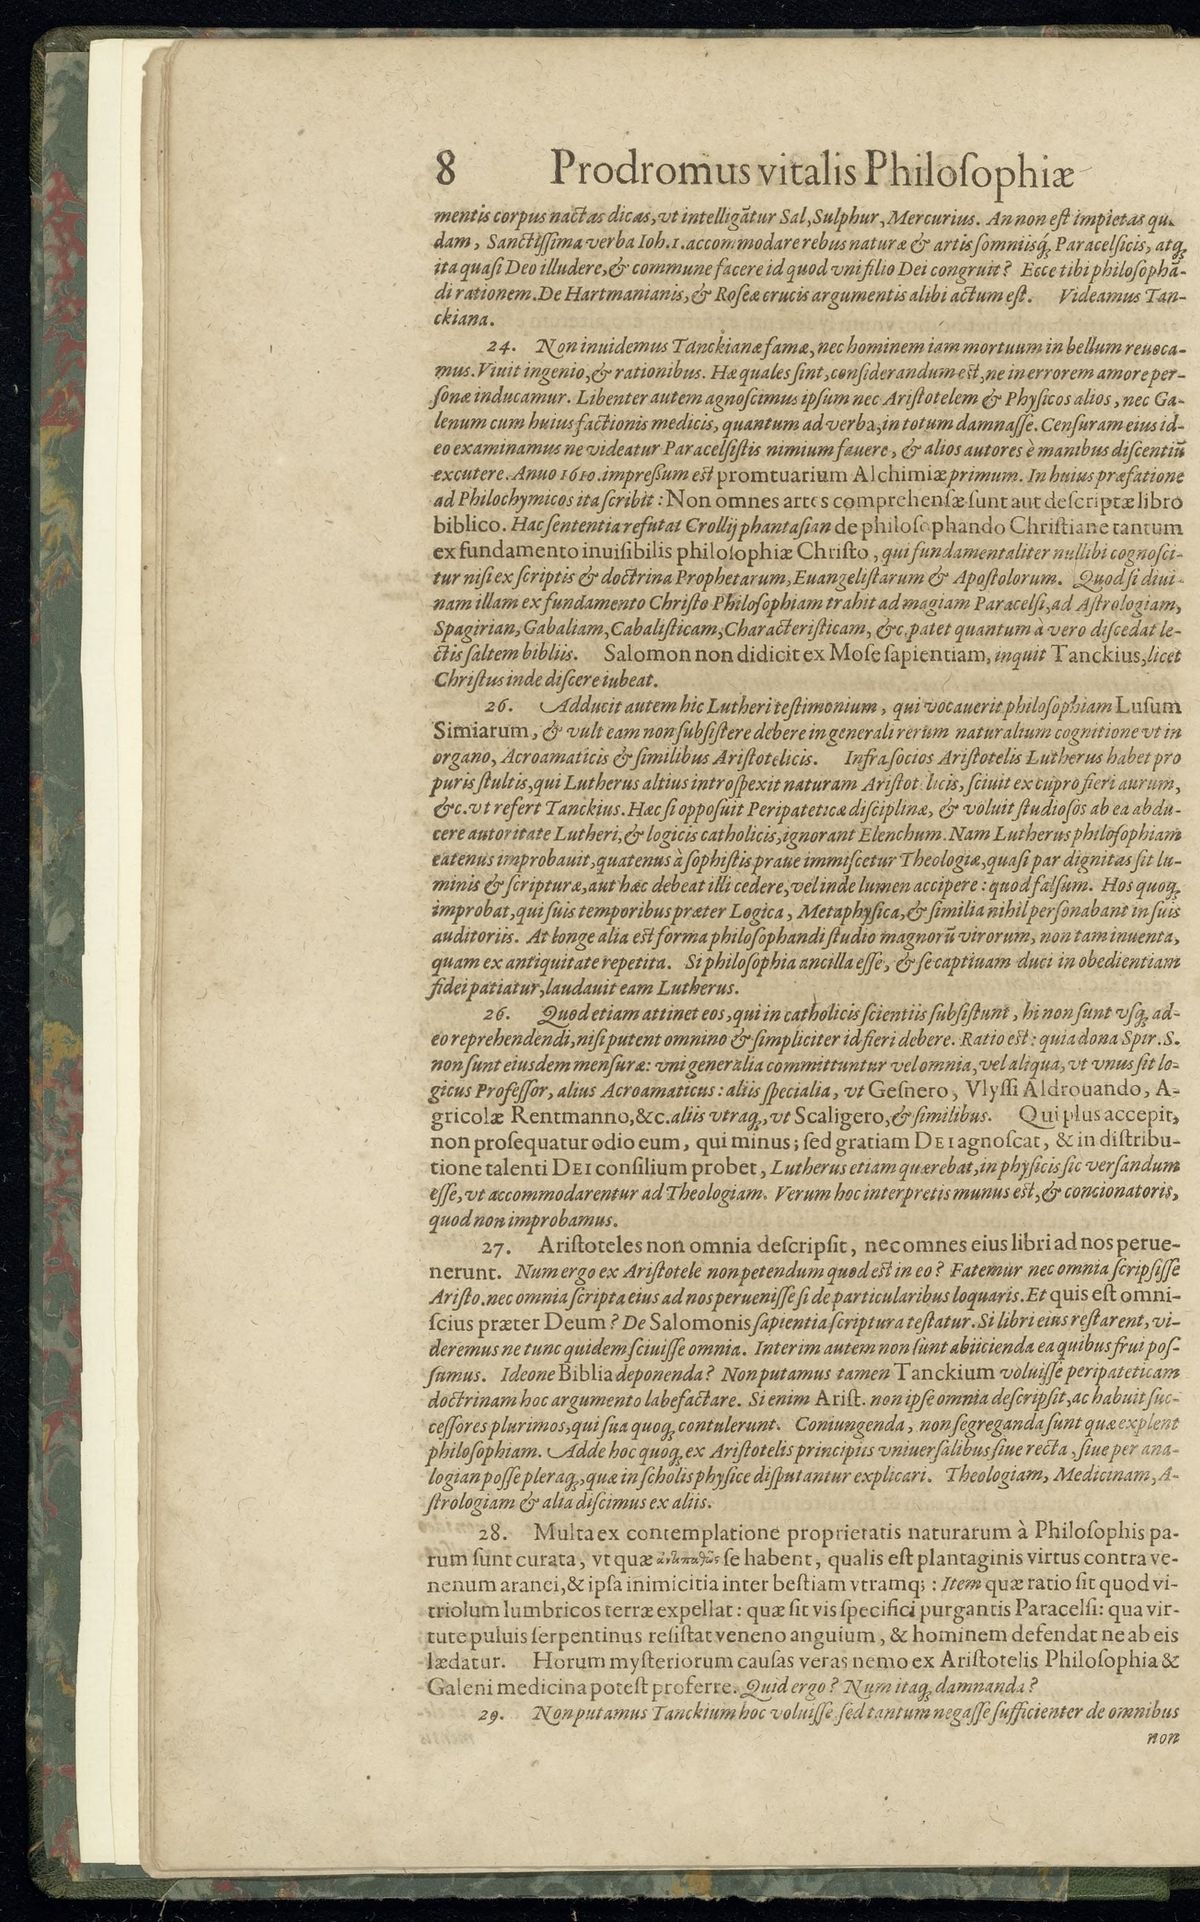 8 Prodromus vitalis Philoſophiæ
mentis corpus nactas dicas, vt intelligātur Sal, Sulphur, Mercurius. An non eſt impietas
dam, Sanctiſſima verba Ioh. 1. accommodare rebus naturæ & artis ſomniisq́, Paracelſicis, atq;
ita quaſi Deo illudere, & commune facere id quod vni filio Dei congruit? Ecce tibi philoſophā-
di rationem. De Hartmanianis, & Roſeæ crucis argumentis alibi actum eſt. Videamus Tan-
ckiana.
24. Non inuidemus Tanckianæ famæ, nec hominem iam mortuum in bellum reuoca-
mus. Viuit ingenio, & rationibus. Hæ quales ſint, conſiderandum est, ne in errorem amore per-
ſonæ inducamur. Libenter autem agnoſcimus ipſum nec Ariſtotelem & Phyſicos alios, nec Ga-
lenum cum huius factionis medicis, quantum ad verba, in totum damnaſſe. Cenſuram eius id-
eo examinamus ne videatur Paracelſiſtis nimium fauere, & alios autores è manibus diſcentiū
excutere. Anuo 1610. impreßum est promtuarium Alchimiæ primum. In huius præfatione
ad Philochymicos ita ſcribit: Non omnes artes comprehenſæ ſunt aut deſcriptæ libro
biblico. Hac ſententia refutat Crollij phantaſian de philoſophando Chriſtiane tantum
ex fundamento inuiſibilis philoſophiæ Chriſto, qui fundamentaliter nullibi cognoſci-
tur niſi ex ſcriptis & doctrina Prophetarum, Euangeliſtarum & Apoſtolorum. Quod ſi diui-
nam illam ex fundamento Chriſto Philoſophiam trahit ad magiam Paracelſi, ad Aſtrologiam,
Spagirian, Gabaliam, Cabaliſticam, Characteriſticam, &c. patet quantum à vero diſcedat le-
ctis ſaltem bibliis. Salomon non didicit ex Moſe ſapientiam, inquit Tanckius, licet
Chriſtus inde diſcere iubeat.
26. Adducit autem hic Lutheri teſtimonium, qui vocauerit philoſophiam Luſum
Simiarum, & vult eam non ſubſiſtere debere in generali rerum naturalium cognitione vt in
organo, Acroamaticis & ſimilibus Ariſtotelicis. Infra ſocios Ariſtotelis Lutherus habet pro
puris ſtultis, qui Lutherus altius introſpexit naturam Ariſtot licis, ſciuit ex cupro fieri aurum,
&c. vt refert Tanckius. Hæc ſi oppoſuit Peripateticæ diſciplinæ, & voluit ſtudioſos ab ea abdu-
cere autoritate Lutheri, & logicis catholicis, ignorant Elenchum. Nam Lutherus philoſophiam
eatenus improbauit, quatenus à ſophiſtis praue immiſcetur Theologiæ, quaſi par dignitas ſit lu-
minis & ſcripturæ, aut hæc debeat illi cedere, vel inde lumen accipere: quod falſum. Hos quoq;
improbat, qui ſuis temporibus præter Logica, Metaphyſica, & ſimilia nihil perſonabant in ſuis
auditoriis. At longe alia est forma philoſophandi ſtudio magnorū virorum, non tam inuenta,
quam ex antiquitate repetita. Si philoſophia ancilla eſſe, & ſe captiuam duci in obedientiam
fidei patiatur, laudauit eam Lutherus.
26. Quod etiam attinet eos, qui in catholicis ſcientiis ſubſiſtunt, hi non ſunt vſq; ad-
eo reprehendendi, niſi putent omnino & ſimpliciter id fieri debere. Ratio est: quia dona Spir. S.
non ſunt eiusdem menſuræ: vni generalia committuntur vel omnia, vel aliqua, vt vnus ſit lo-
gicus Profeſſor, alius Acroamaticus: aliis ſpecialia, vt Geſnero, Vlyſſi Aldrouando, A-
gricolæ Rentmanno, &c. aliis vtraq;, vt Scaligero, & ſimilibus. Qui plus accepit,
non proſequatur odio eum, qui minus; ſed gratiam DEI agnoſcat, & in diſtribu-
tione talenti DEI conſilium probet, Lutherus etiam quærebat, in phyſicis ſic verſandum
eſſe, vt accommodarentur ad Theologiam. Verum hoc interpretis munus est, & concionatoris,
quod non improbamus.
27. Ariſtoteles non omnia deſcripſit, nec omnes eius libri ad nos perue-
nerunt. Num ergo ex Ariſtotele non petendum quod est in eo? Fatemur nec omnia ſcripſiſſe
Ariſto. nec omnia ſcripta eius ad nos perueniſſe ſi de particularibus loquaris. Et quis eſt omni-
ſcius præter Deum? De Salomonis ſapientia ſcriptura teſtatur. Si libri eius reſtarent, vi-
deremus ne tunc quidem ſciuiſſe omnia. Interim autem non ſunt abiicienda ea quibus frui poſ-
ſumus. Ideone Biblia deponenda? Non putamus tamen Tanckium voluiſſe peripateticam
doctrinam hoc argumento labefactare. Si enim Ariſt. non ipſe omnia deſcripſit, ac habuit ſuc-
ceſſores plurimos, qui ſua quoq; contulerunt. Coniungenda, non ſegreganda ſunt quæ explent
philoſophiam. Adde hoc quoq; ex Ariſtotelis principiis vniuerſalibus ſiue recta, ſiue per ana-
logian poſſe pleraq;, quæ in ſcholis phyſice diſputantur explicari. Theologiam, Medicinam, A-
ſtrologiam & alia diſcimus ex aliis.
28. Multa ex contemplatione proprietatis naturarum à Philoſophis pa-
rum ſunt curata, vt quæ ſe habent, qualis eſt plantaginis virtus contra ve-
nenum aranei, & ipſa inimicitia inter beſtiam vtramq;: Item quæ ratio ſit quod vi-
triolum lumbricos terræ expellat: quæ ſit vis ſpecifici purgantis Paracelſi: qua vir-
tute puluis ſerpentinus reſiſtat veneno anguium, & hominem defendat ne ab eis
lædatur. Horum myſteriorum cauſas veras nemo ex Ariſtotelis Philoſophia &
Galeni medicina poteſt proferre. Quid ergo? Num itaq; damnanda?
29. Non putamus Tanckium hoc voluiſſe, ſed tantum negaſſe ſufficienter de omnibus
non